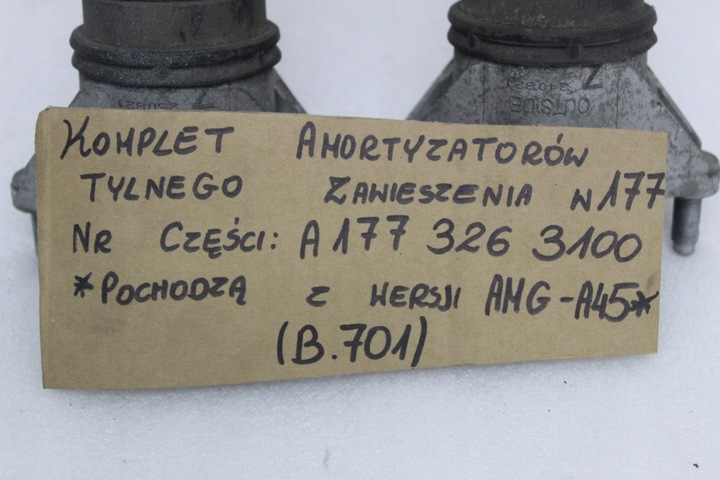 KOMPLET AMORTYZATORÓW
TYLNEGO ZAWIESZENIA W177
NR CZĘŚCI: A 177 326 3100
*POCHODZĄ Z WERSJI AMG-A45*
(B.701)
OUTSIDE